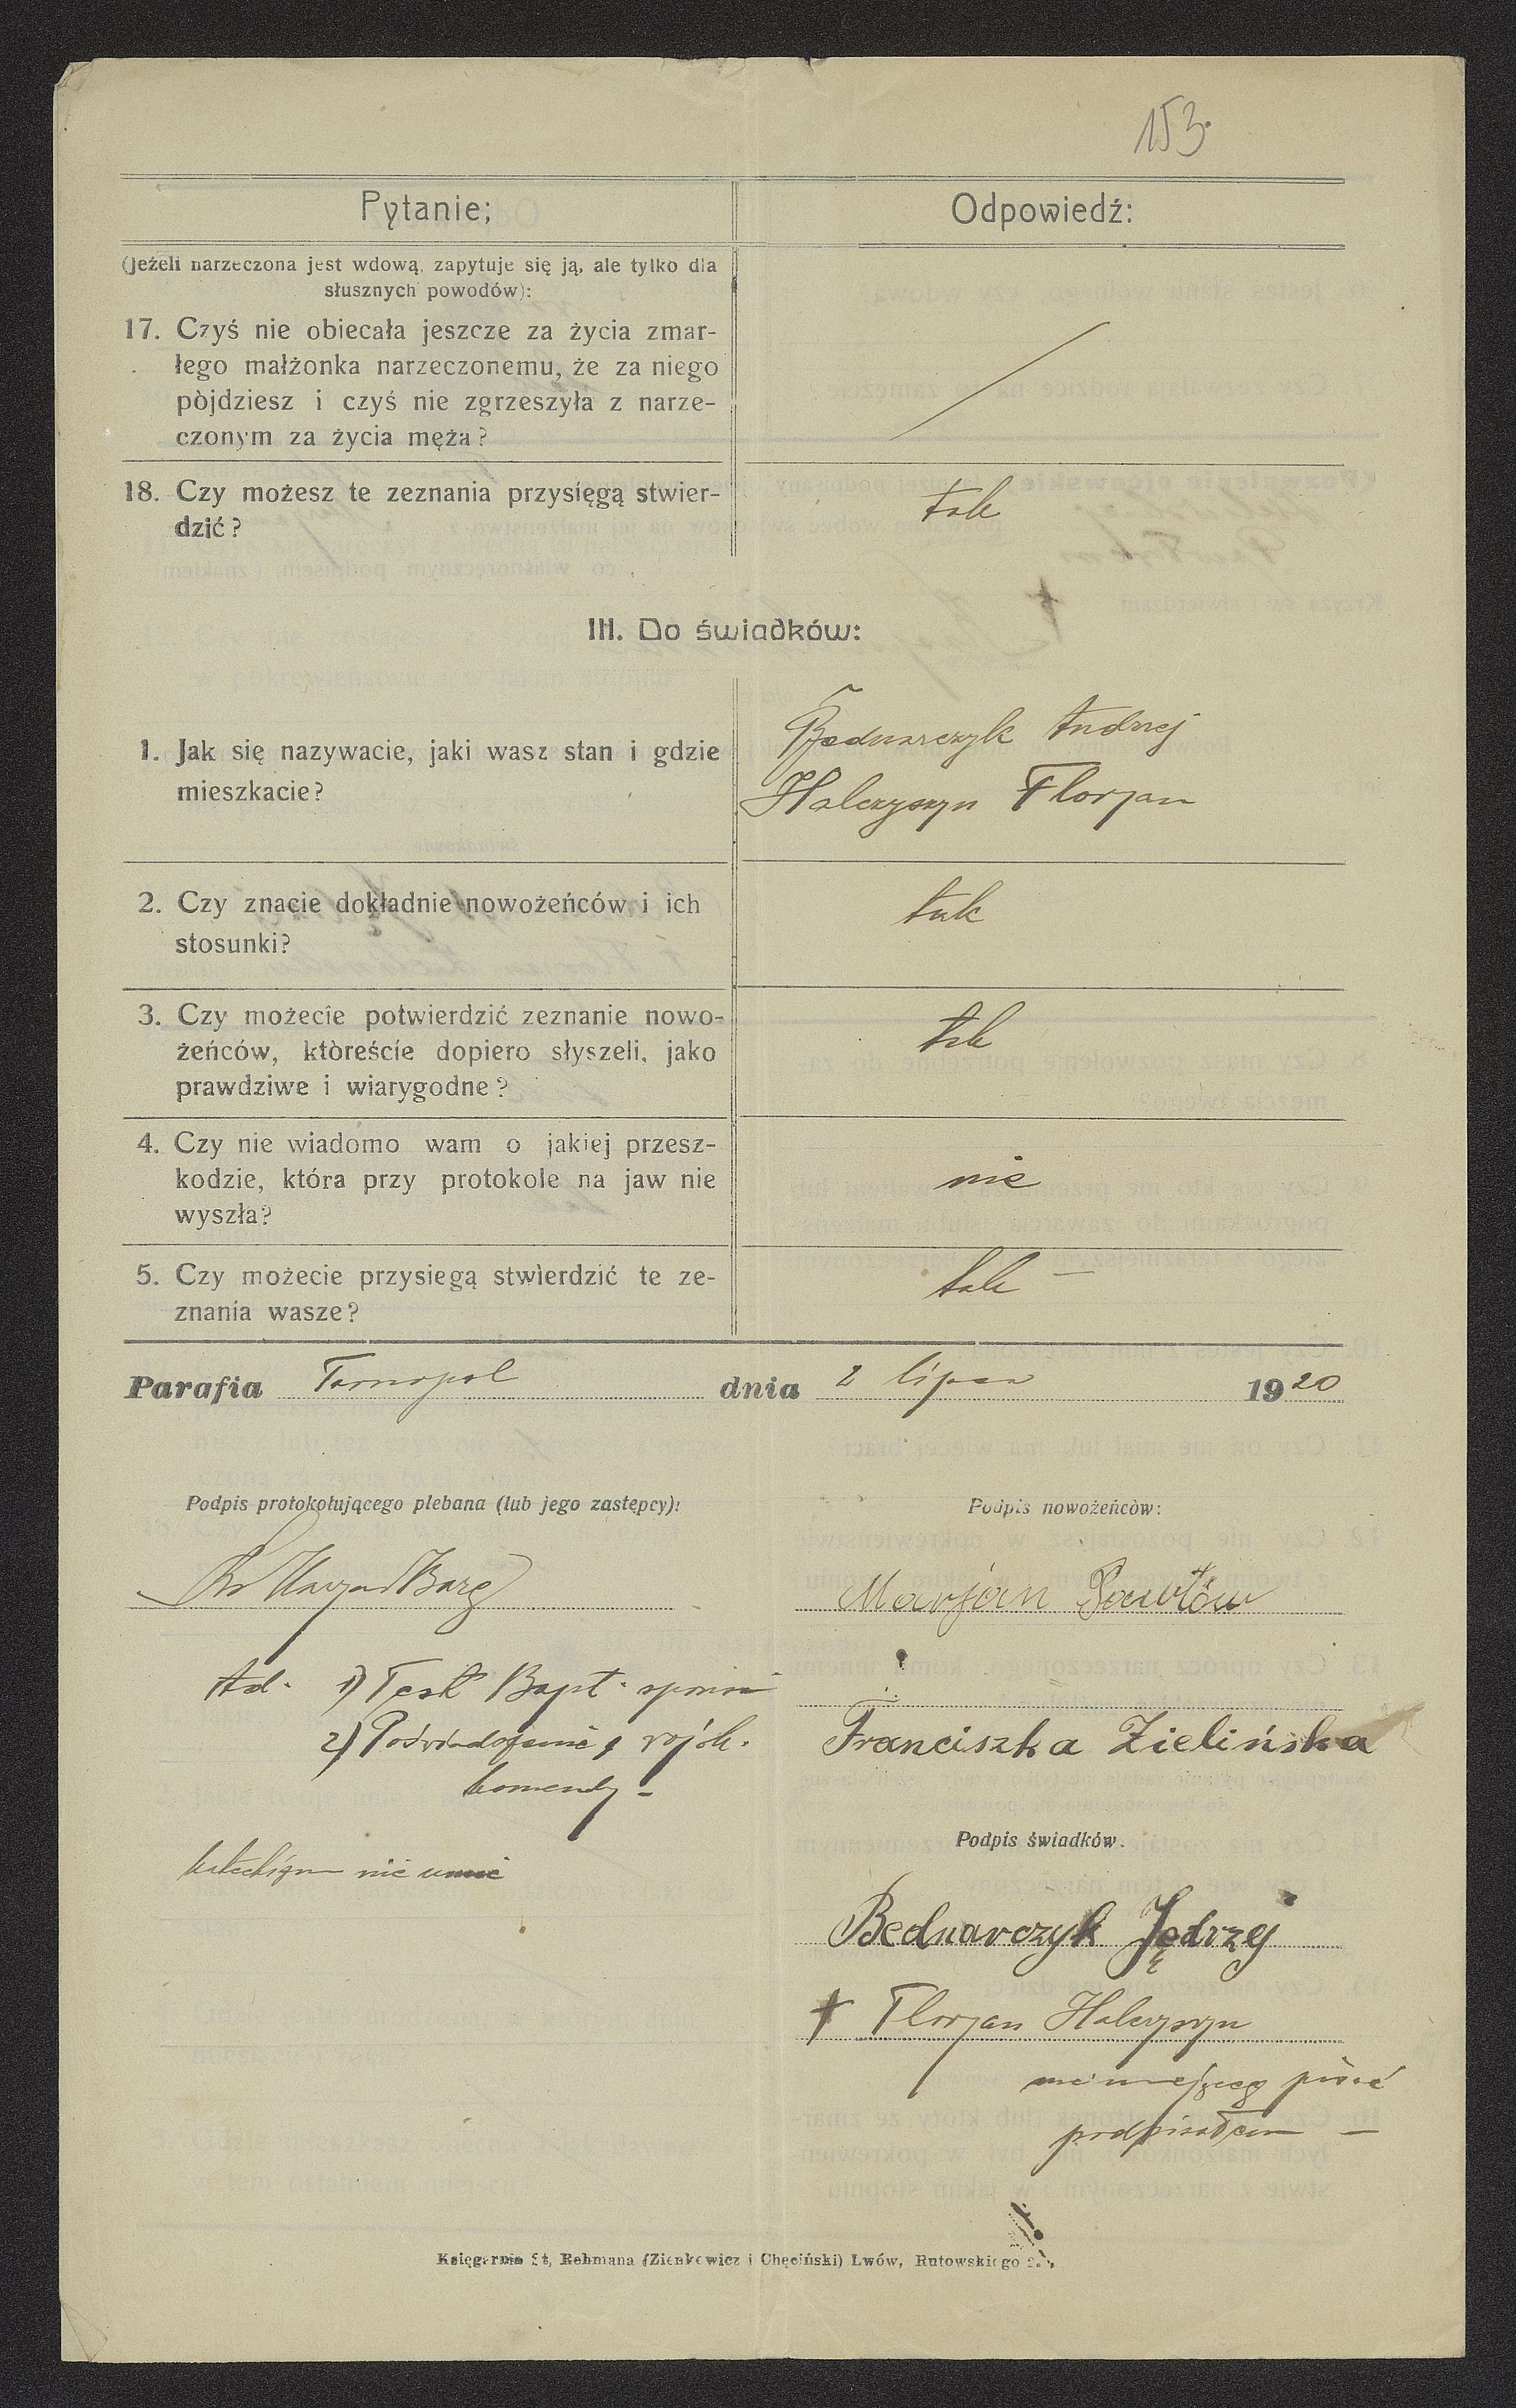 153.
Pytanie;
Odpowiedź:
(Jeżeli narzeczona jest wdową, zapytuje się ją, ale tylko dla
słusznych powodów):
17. Czyś nie obiecała jeszcze za życia zmar-
łego małżonka narzeczonemu, że za niego
pòjdziesz i czyś nie zgrzeszyła z narze-
czonym za życia męża?
18. Czy możesz te zeznania przysięgą stwier-
dzić?
tak
III. Do świadków:
1. Jak się nazywacie, jaki wasz stan i gdzie
mieszkacie?
Bednarczyk Andrzej
Halczyszyn Florjan
2. Czy znacie dokładnie nowożeńców i ich
stosunki?
tak
3. Czy możecie potwierdzić zeznanie nowo-
żeńców, któreście dopiero słyszeli, jako
prawdziwe i wiarygodne?
tak
4. Czy nie wiadomo wam o jakiej przesz-
kodzie, która przy protokole na jaw nie
wyszła?
nie
5. Czy możecie przysiegą stwierdzić te ze-
znania wasze?
tak —
Parafia Tarnopol dnia 2 lipca 1920
Podpis protokołującego plebana (lub jego zastępcy):
Podpis nowożeńcòw:
Ks
Marjan Pawłów
Ad. 1) Test Bapt.
2) Poświadczenie wojsk.
komendy –
Franciszka Zielińska
Podpis świadków.
katechizm nie umie
Bednarczyk Jędrzej
† Florjan Halczyszyn
nieumiejącego pisać
podpisałem —
Księgarnia St, Rehmana (Zienkowicz i Chęciński) Lwów, Rutowskiego